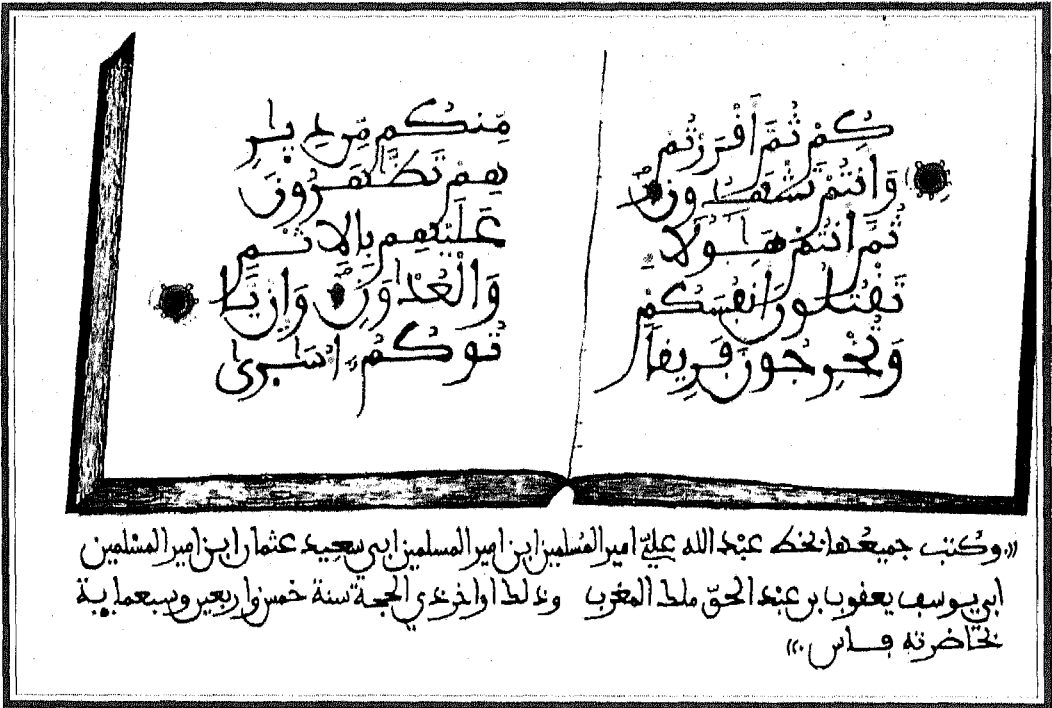 كُمْ ثُمَّ أَقْرَرْتُمْ
وَأَنتُمْ تَشْهَدُونَ
ثُمَّ أَنتُمْ هَٰٓؤُلَآ
تَقْتُلُونَ أَنفُسَكُمْ
وَتُخْرِجُونَ فَرِيقاً
مِّنكُم مِّن دِيَٰرِ
هِمْ تَظَّٰهَرُونَ
عَلَيْهِم بِالِاثْمِ
وَالْعُدْوَٰنِ وَإِنْ يَّا
تُوكُمُۥٓ أُسَٰرَىٰ
«.وكتب جميعها بخط عبد الله عليّ امير المسلمين ابن امير المسلمين ابي سعيد عثمان ابن امير المسلمين
ابي يوسف يعقوب بن عبد الحقّ ملك المغرب وذلك اواخر ذي الحجة سنة خمس واربعين وسبعماية
بحاضرته فاس .»